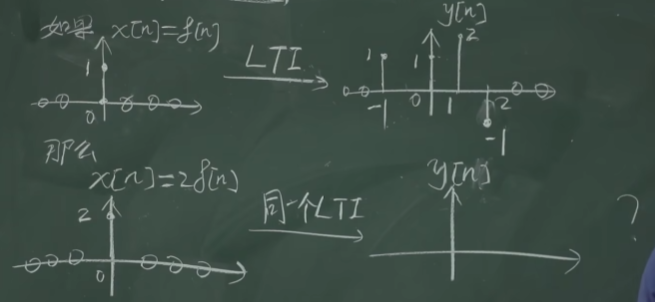 如果 x[n]=δ[n]
1
0
LTI
y[n]
1
1
2
-1
0
1
2
-1
那么
x[n]=2δ[n]
2
0
同一个LTI
y[n]
?